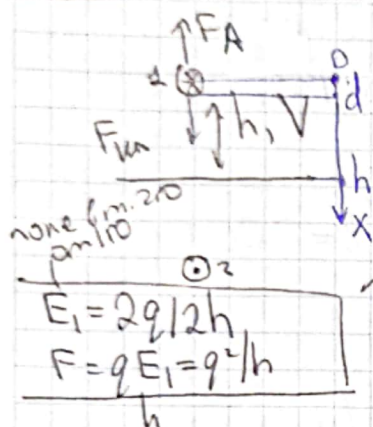 F_A
0
1
d
h, V
F_кл
h
x
поле
2
E₁ = 2q/2h
F = qE₁ = q²/h
h